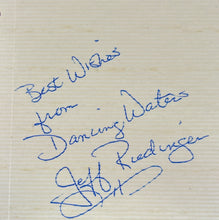 Best Wishes
from
Dancing Waters
Jeff Riedinger